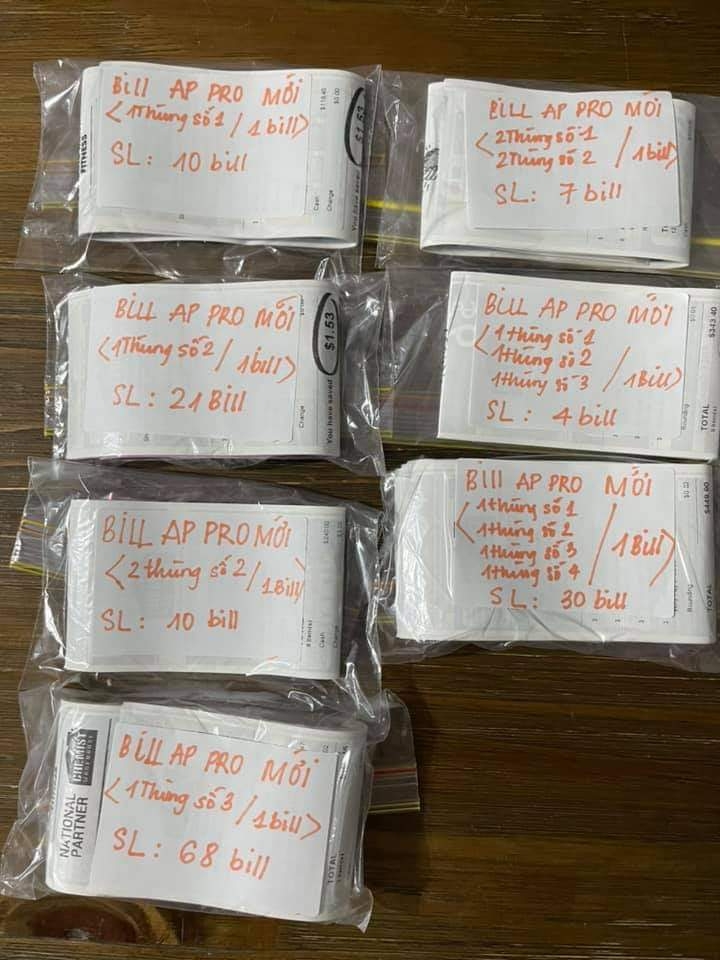 Bill AP PRO MỚI
<1Thùng số 1 / 1 bill>
SL: 10 bill
FITNESS
$118.40
$0.00
Cash
Change
You have saved
$1.53
BILL AP PRO MỚI
<2Thùng số 1
2Thùng số 2 / 1bill>
SL: 7 bill
BILL AP PRO MỚI
<1Thùng số 2 / 1bill>
SL: 21 Bill
Change
You have saved
$1.53
BILL AP PRO MỚI
<1 thùng số 1
1thùng số 2
1thùng số 3 / 1Bill>
SL: 4 bill
Rounding
TOTAL
$343.40
BILL AP PRO MỚI
<2 thùng số 2 / 1Bill>
SL: 10 bill
Cash
Change
Bill AP PRO MỚI
<1thùng số 1
1thùng số 2
1thùng số 3
1thùng số 4 / 1Bill>
SL: 30 bill
Rounding
TOTAL
$449.90
BILL AP PRO MỚI
<1Thùng số 3 / 1bill>
SL: 68 bill
NATIONAL
PARTNER
CHEMIST
WAREHOUSE
TOTAL